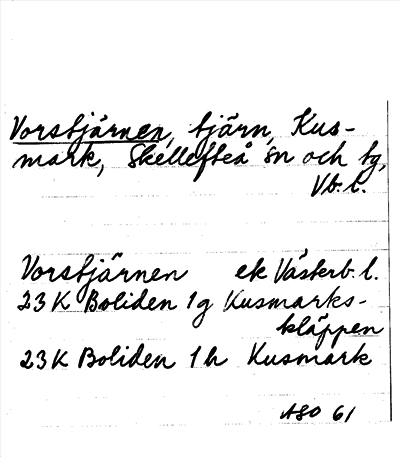 Vorstjärnen, tjärn, Kus-
mark, Skellefteå sn och tg,
Vb. l.
Vorstjärnen ek Västerb. l.
23 K Boliden 1 g Kusmarks-
kläppen
23 K Boliden 1 h Kusmark
ASO 61